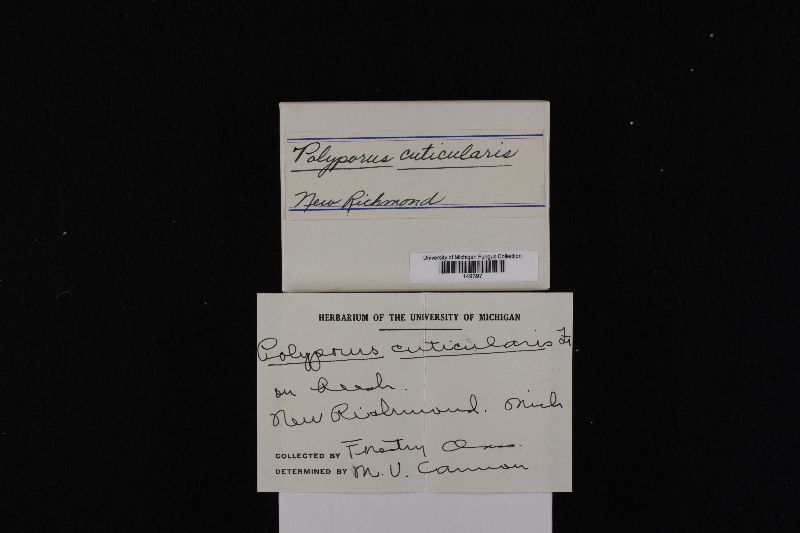 Polyporus cuticularis
New Richmond
University of Michigan Fungus Collection
149397
HERBARIUM OF THE UNIVERSITY OF MICHIGAN
Polyporus cuticularis Fr
on Beech.
New Richmond. Mich
COLLECTED BY Forestry
DETERMINED BY M. V. Cannon